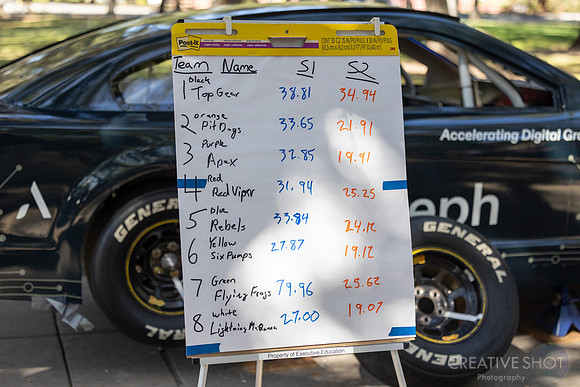 Post-it
Team Name S1 S2
1 black Top Gear 38.81 34.94
2 orange Pit Dogs 33.65 21.91
3 Purple Apex 32.85 19.91
4 Red Red Viper 31.94 25.25
5 Blue Rebels 33.84 24.12
6 Yellow Six Pumps 27.87 19.12
7 Green Flying Frogs 79.96 25.62
8 white Lightning McQueen 27.00 19.07
Property of Executive Education
Accelerating Digital Gr
eph
GENERAL
GENERAL
GENERAL
GENERAL
CREATIVE SHOT
Photography